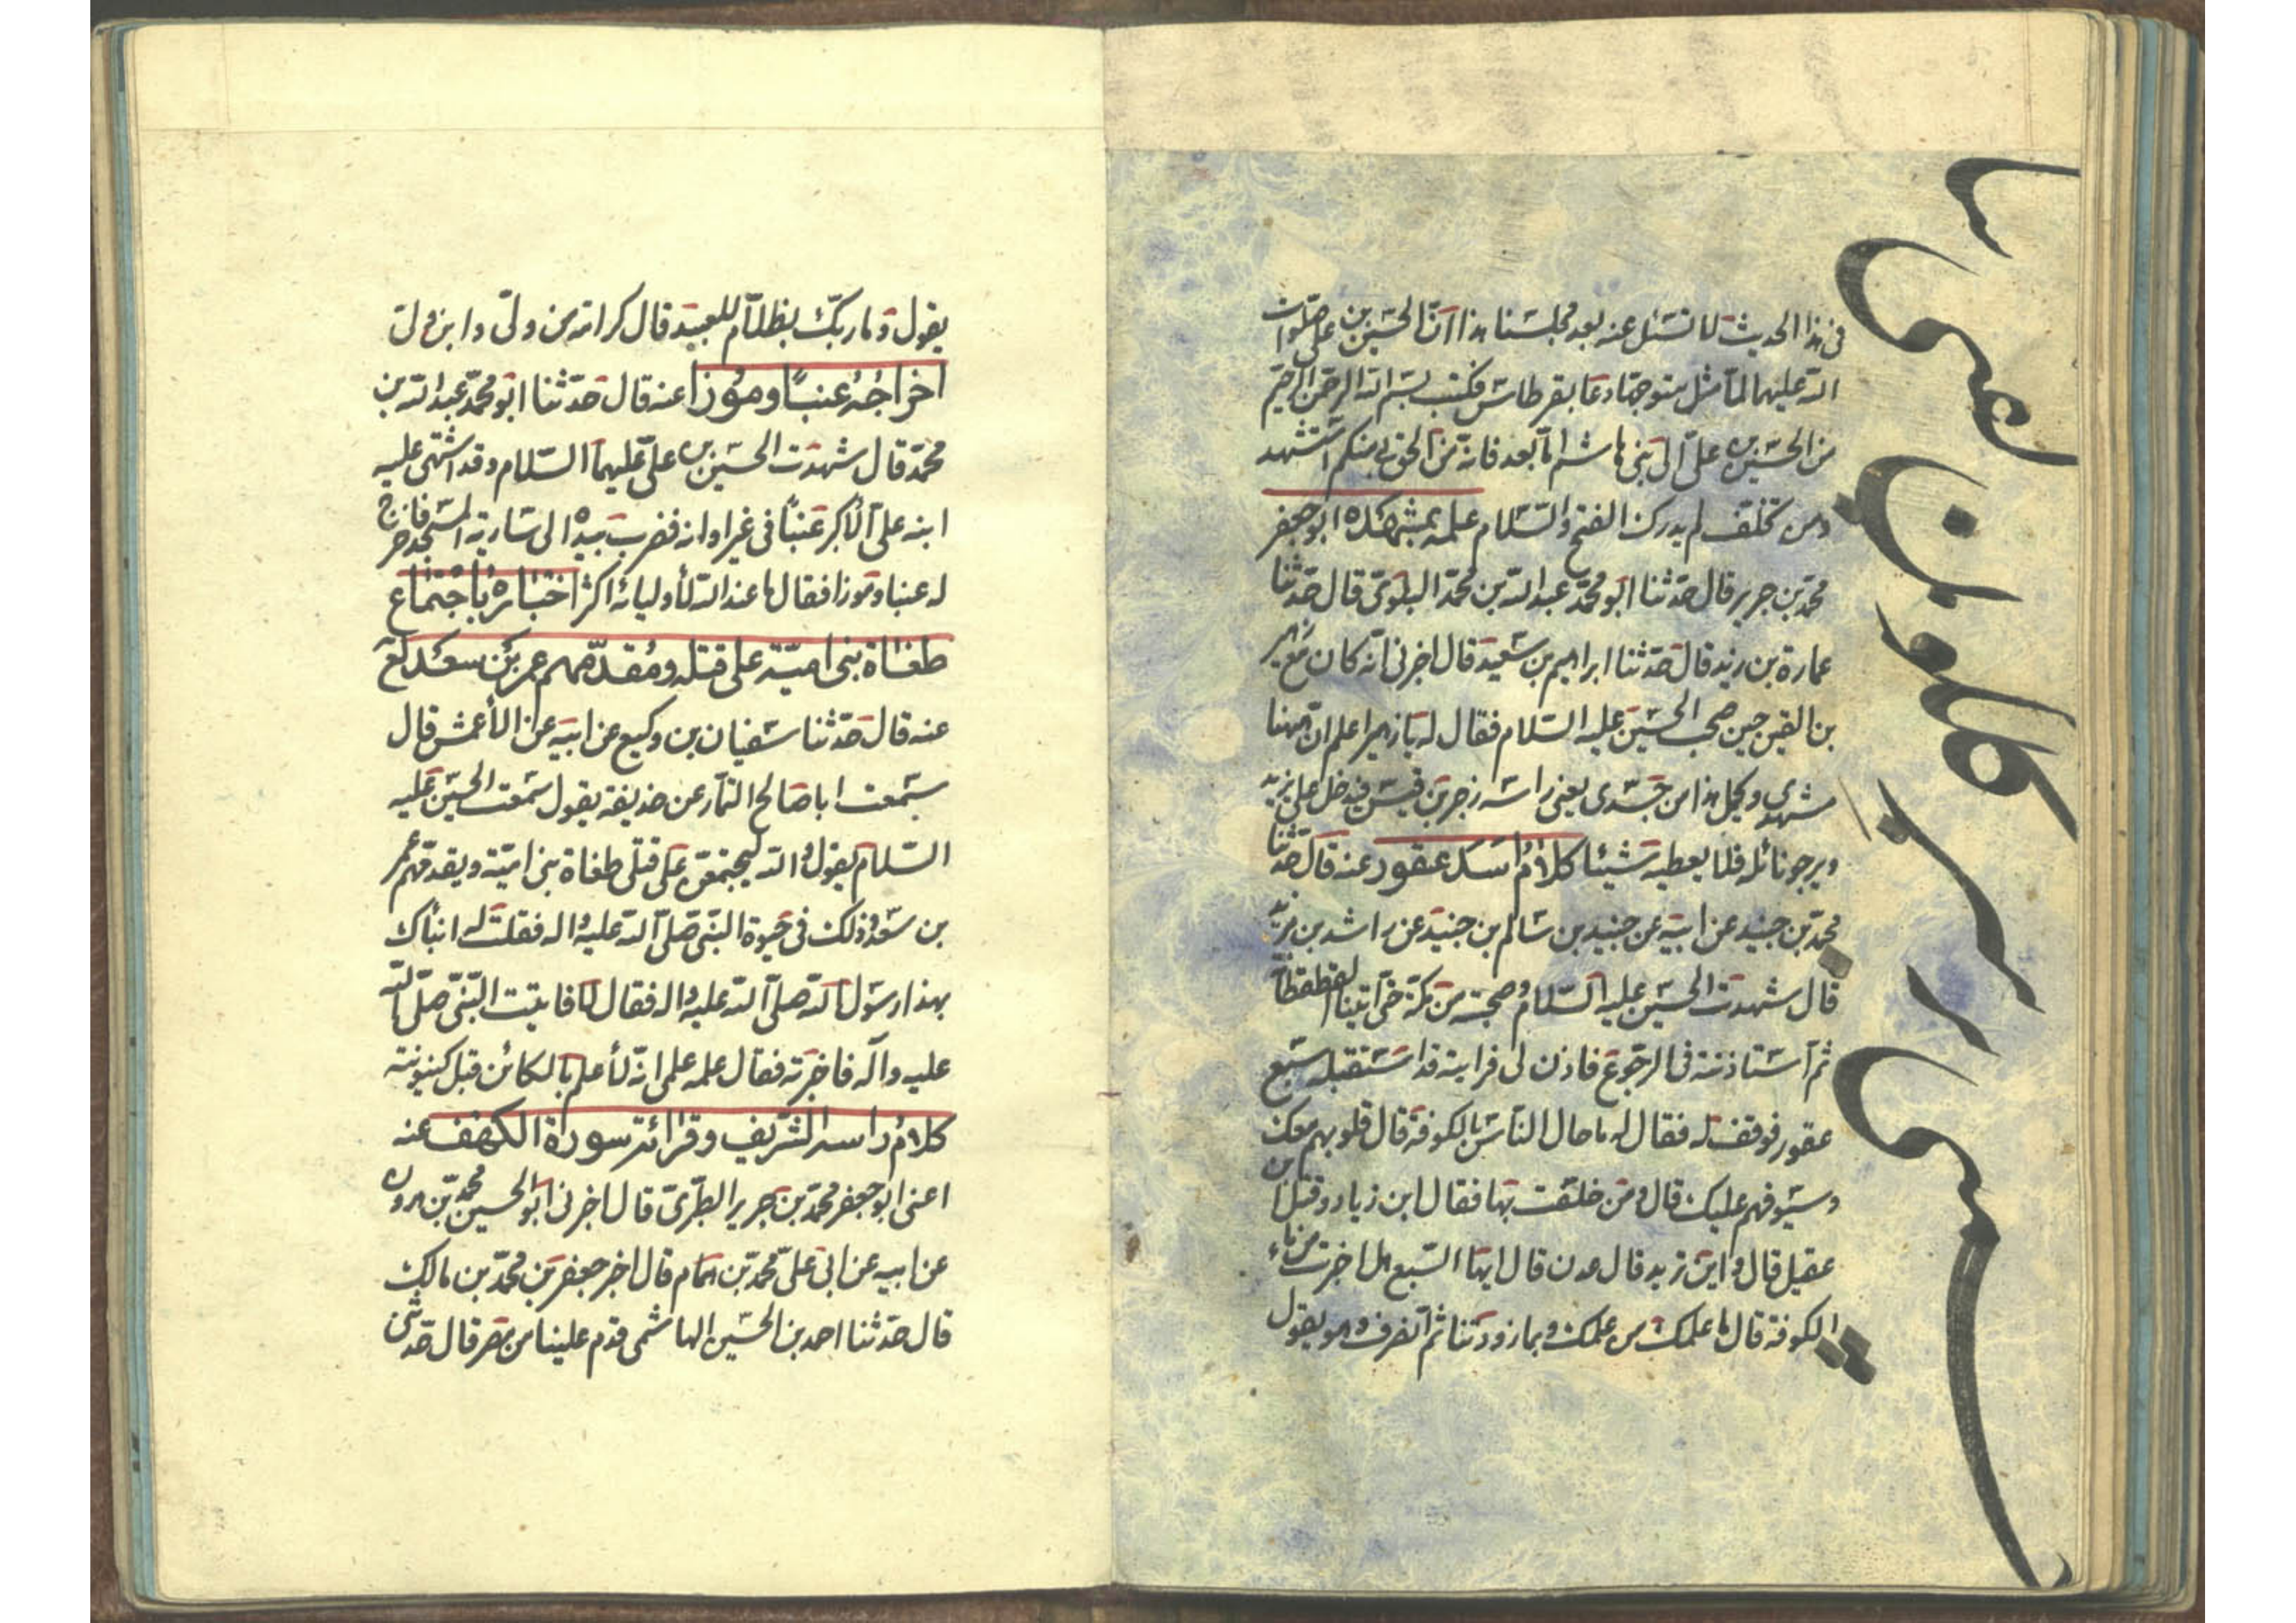 فی هذا الحدیث لا تسئل عنه بعد مجلسنا هذا ان الحسین بن علی صلوات
الله علیهما لما مثل متوجها دعا بقرطاس فکتب بسم الله الرحمن الرحیم
من الحسین بن علی الی بنی هاشم اما بعد فانه من الحق بی منکم استشهد
ومن تخلف لم یدرک الفتح والسلام علمه بمشهده ابو جعفر
محمد بن جریر قال حدثنا ابو محمد عبد الله بن محمد البلوی قال حدثنا
عمارة بن زید قال حدثنا ابراهیم بن سعید قال اخبرنی انه کان مع زهیر
بن القین حین صحب الحسین علیه السلام فقال له یا زهیر اعلم ان ههنا
مشهدی ویحمل هذا من جسدی یعنی راسه زجر بن قیس فیدخل علی یزید
ویرجو نائله فلا یعطیه شیئا کلام اسد عقور عنه قال حدثنا
محمد بن جنید عن ابیه عن جنید بن سالم بن جنید عن راشد بن مزید
قال شهدت الحسین علیه السلام وصحبته من مکة حتی اتینا القطقطانة
ثم استاذنته فی الرجوع فاذن لی فرایته قد استقبله سبع
عقور فوقف له فقال له ما حال الناس بالکوفة قال قلوبهم معک
وسیوفهم علیک قال ومن خلفت بها فقال ابن زیاد وقتل ابن
عقیل قال واین ترید قال عدن قال ایها السبع هل خبرت من ماء
الکوفة قال ما علمک من علمک وبما زودتنا ثم انصرف وهو یقول
یقول وما ربک بظلام للعبید قال کرامة من ولی وابن ولی
اخراجه عنبا وموزا عنه قال حدثنا ابو محمد عبد الله بن
محمد قال شهدت الحسین بن علی علیهما السلام وقد اشتهی علیه
ابنه علی الاکبر عنبا فی غیر اوانه فضرب بیده الی ساریة المسجد فاخرج
له عنبا وموزا فقال ما عند الله لأولیائه اکثر اخباره باجتماع
طغاة بنی امیة علی قتله ومقدمهم عمر بن سعد لع
عنه قال حدثنا سفیان بن وکیع عن ابیه عن الأعمش قال
سمعت ابا صالح التمار عن حذیفة یقول سمعت الحسین علیه
السلام یقول والله لیجتمعن علی قتلی طغاة بنی امیة ویقدمهم عمر
بن سعد وذلک فی حیوة النبی صلی الله علیه واله فقلت له انبأک
بهذا رسول الله صلی الله علیه واله فقال لا فاتیت النبی صلی الله
علیه وآله فاخبرته فقال علمه علمی انه لأعلم بالکائن قبل کینونته
کلام راسه الشریف وقرائته سورة الکهف عنه
اعنی ابو جعفر محمد بن جریر الطبری قال اخبرنی ابو الحسین محمد بن هرون
عن ابیه عن ابی علی محمد بن همام قال اخبر جعفر بن محمد بن مالک
قال حدثنا احمد بن الحسین الهاشمی قدم علینا من مصر قال حدثنی